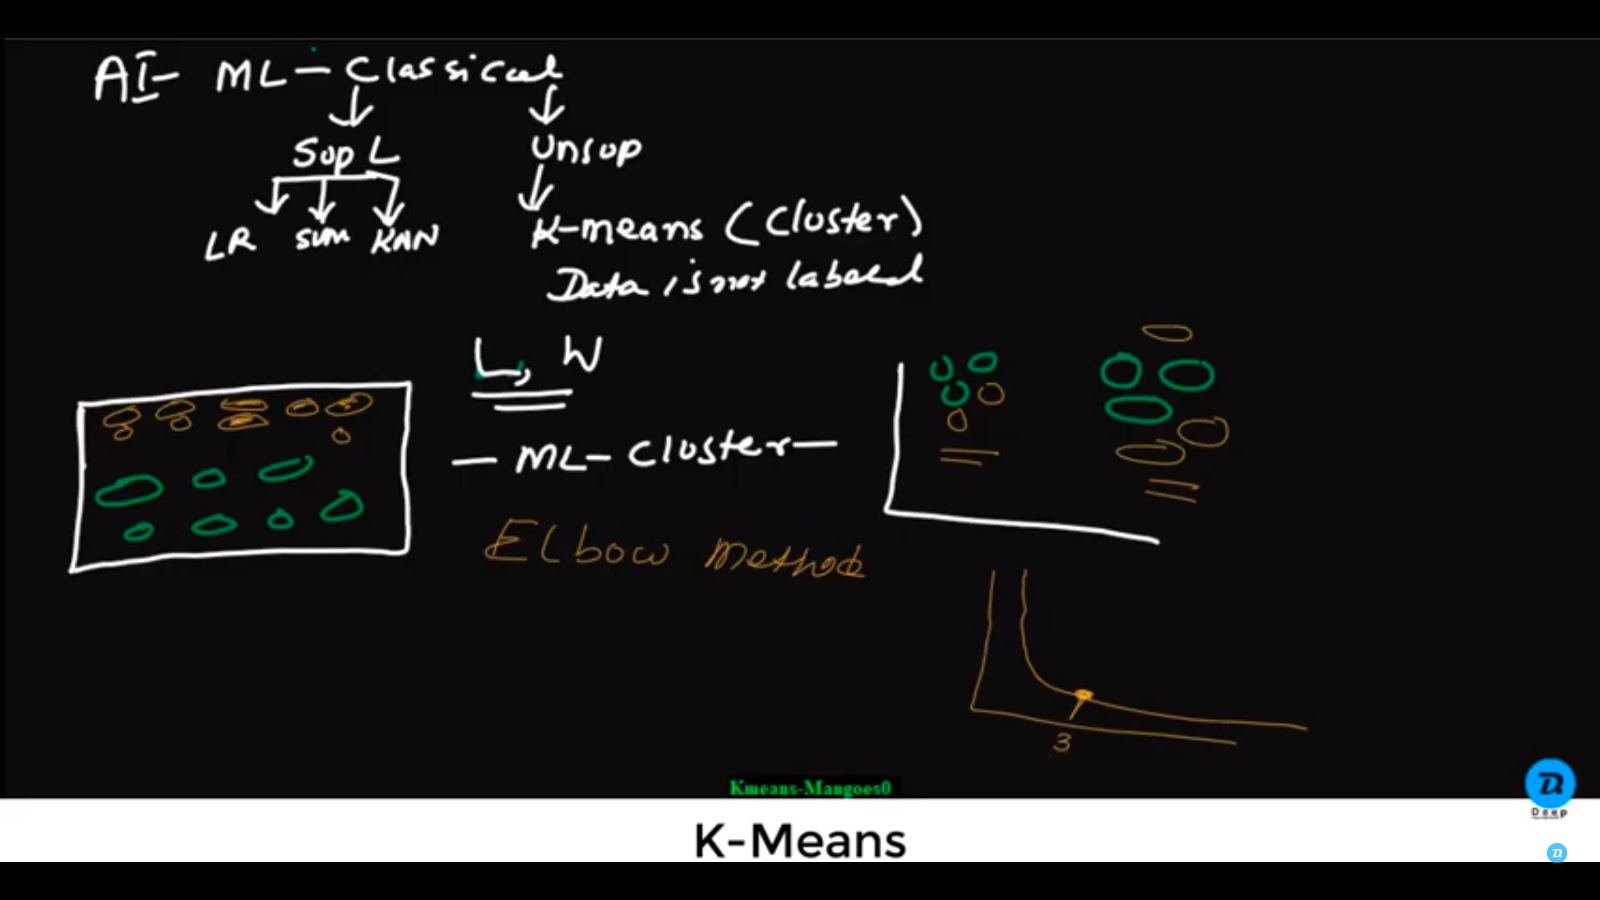 AI- ML - Classical
Sup L
Unsup
LR SVM KNN
K-means (Cluster)
Data is not labeled
L, W
- ML- Cluster -
Elbow Method
3
Kmeans-Mangoes0
Deep
K-Means